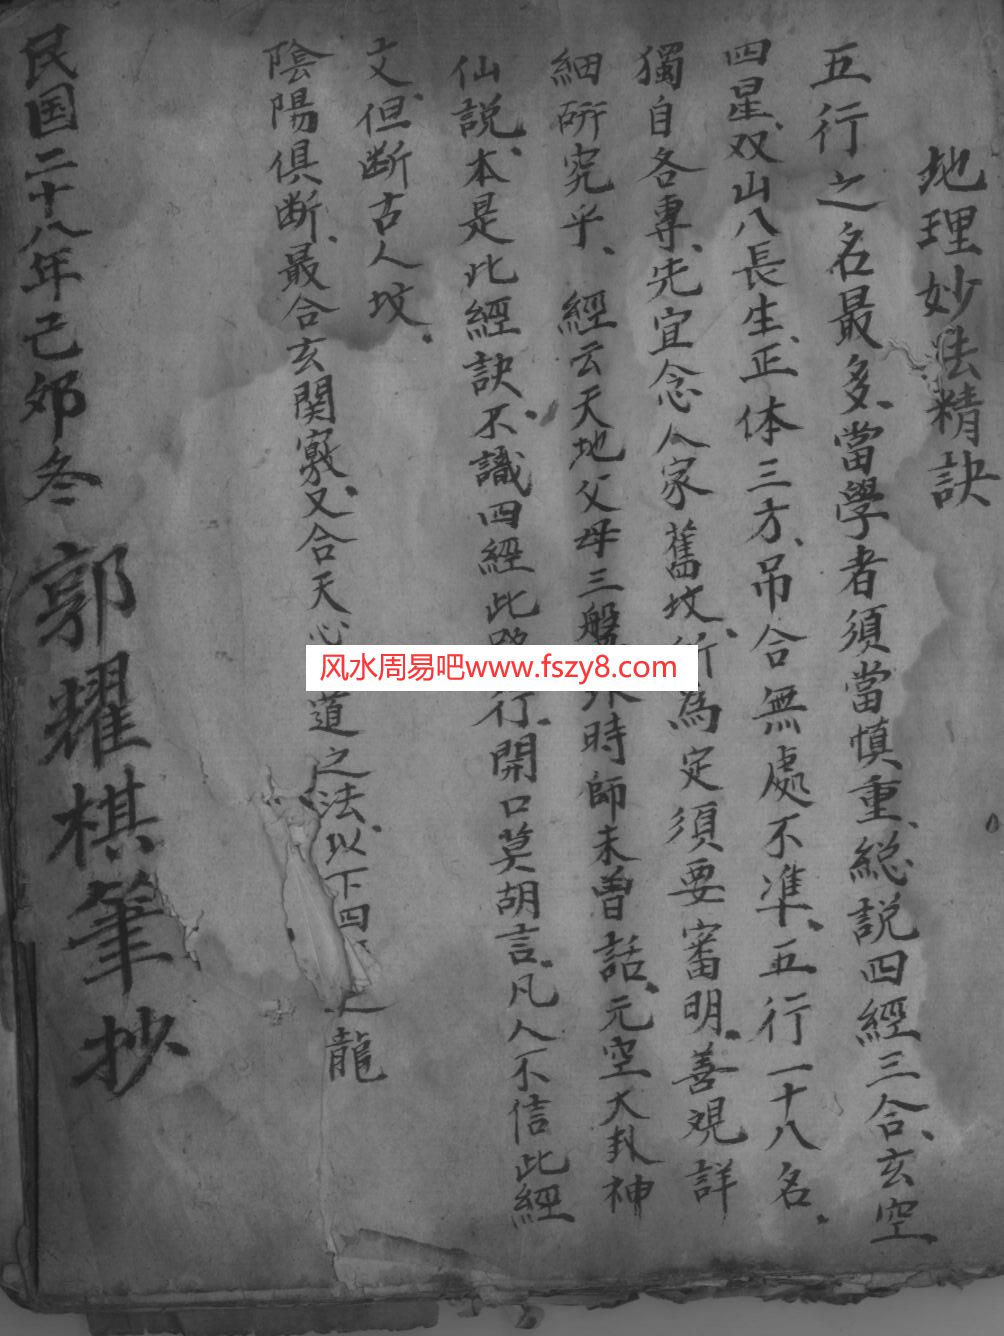 地理妙法精訣
五行之名最多、當學者須當慎重、総説四經三合、玄空
四星、双山八長生、正体三方、吊合無處不準、五行一十八名、
獨自各專、先宜念人家舊坟、所為定須要審明、善观詳
細研究乎、經云天地父母三盤 時師未曽話、元空大卦神
仙説、本是此經訣、不識四經此 行、開口莫胡言、凡人不信此經
文、但断古人坟、
陰陽俱断、最合玄関竅、又合天心 道之法、以下四 龍
民国二十八年己夘冬 郭耀棋筆抄
风水周易吧www.fszy8.com